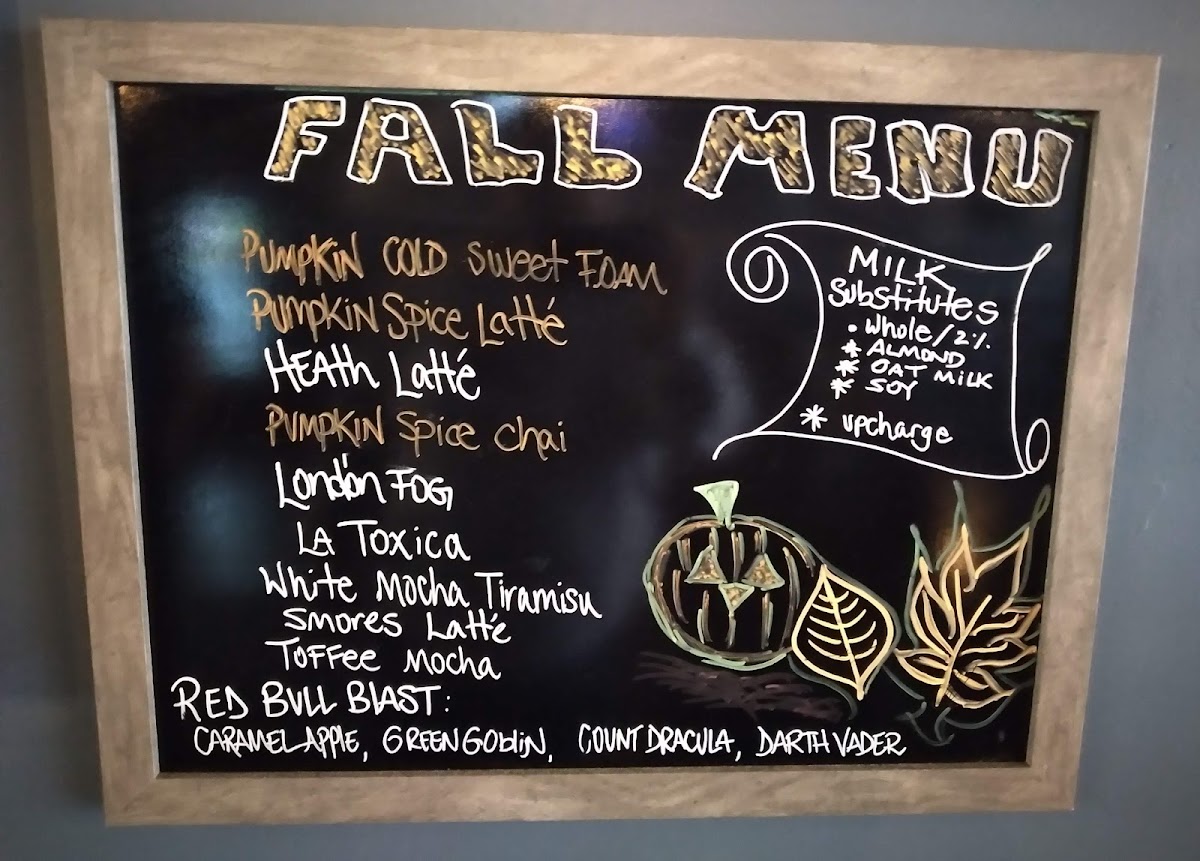 FALL MENU
PUMPKIN COLD Sweet FOAM
PUMPKIN Spice Latté
HEATH Latté
PUMPKIN Spice Chai
London FOG
LA TOXICA
White Mocha Tiramisu
Smores Latté
TOFFee Mocha
RED BULL BLAST:
CARAMEL APPLE, GREEN GOblin, COUNT DRACULA, DARTH VADER
MILK
Substitutes
• Whole/2%
* ALMOND
* OAT MILK
* SOY
* upcharge